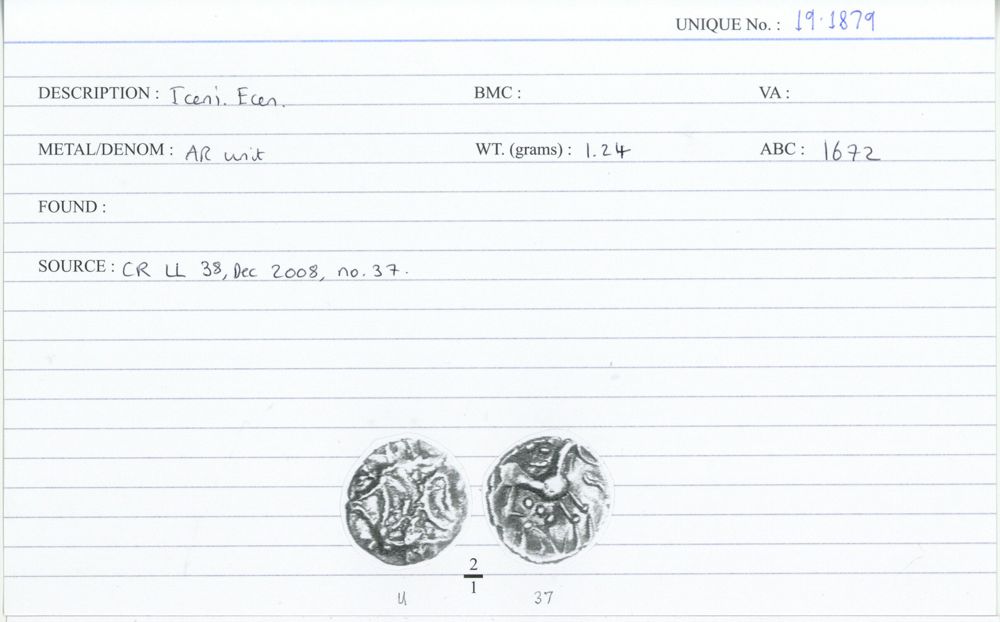 UNIQUE No. : 19.1879
DESCRIPTION : Iceni. Ecen. BMC : VA :
METAL/DENOM : AR unit WT. (grams) : 1.24 ABC : 1672
FOUND :
SOURCE : CR LL 38, Dec 2008, no. 37.
2
1
U 37